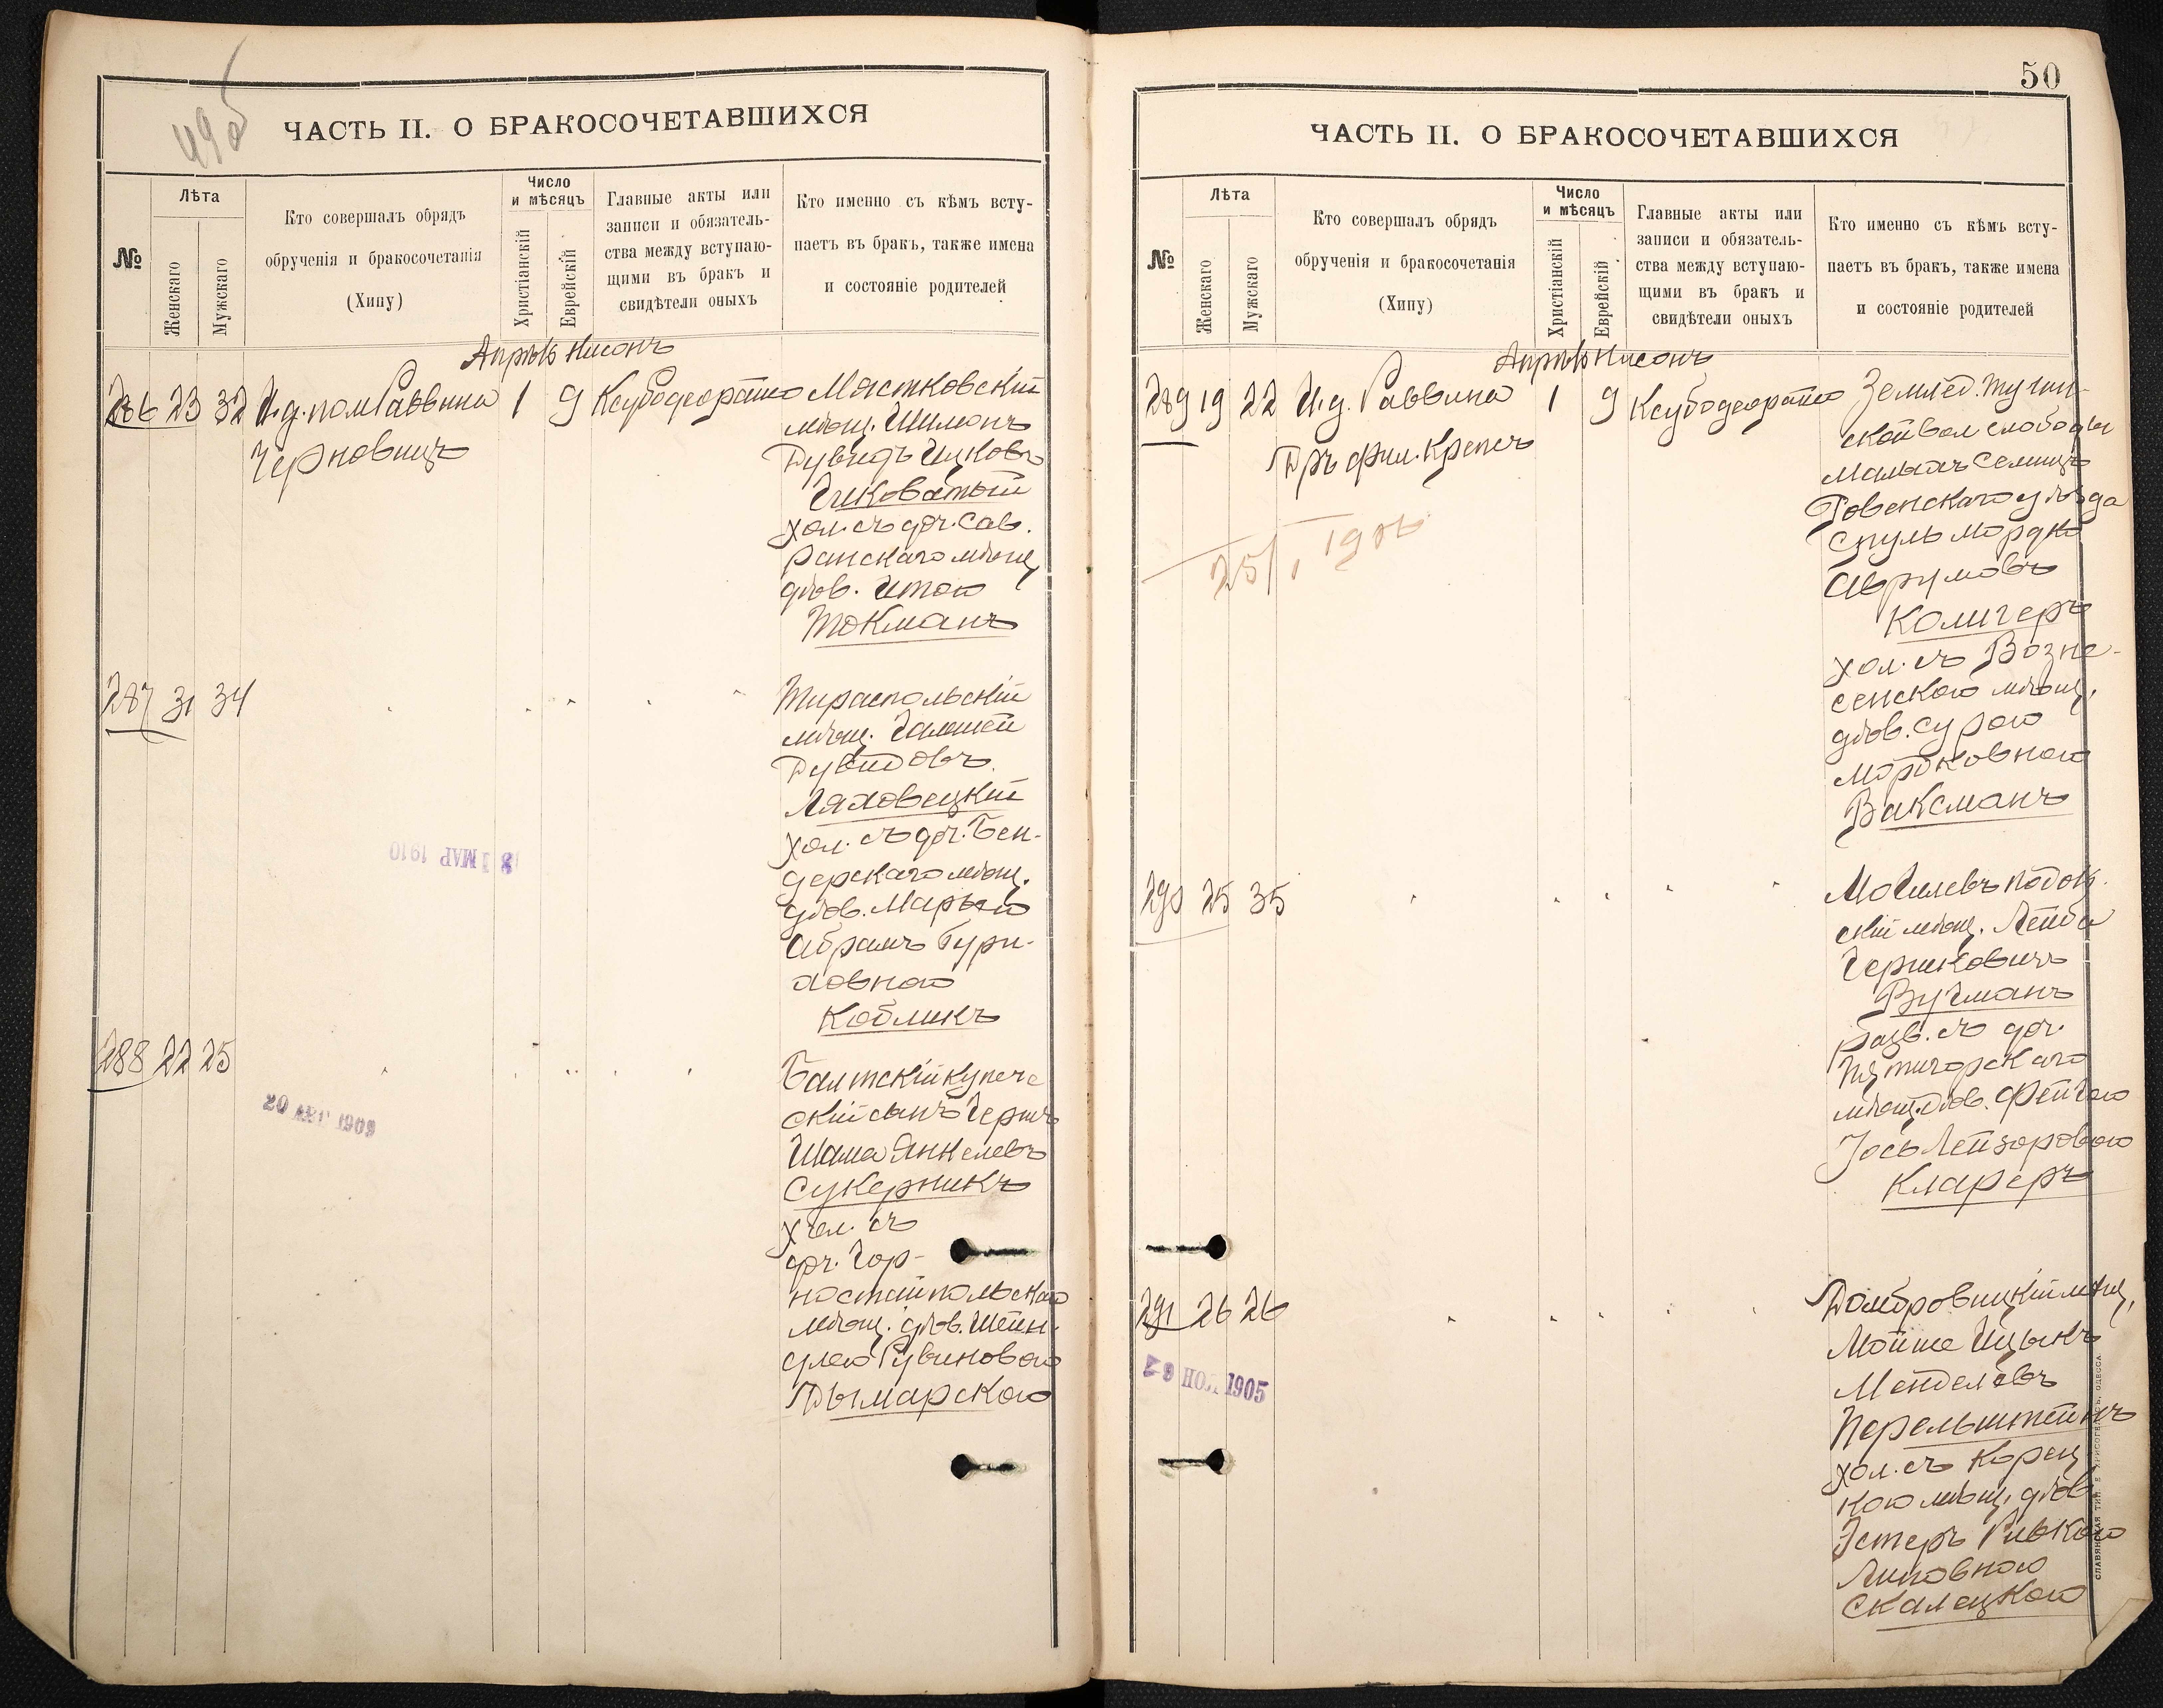 49об
ЧАСТЬ II. О БРАКОСОЧЕТАВШИХСЯ
№
Лѣта
Женскаго
Мужскаго
Кто совершалъ обрядъ
обрученія и бракосочетанія
(Хипу)
Число
и мѣсяцъ
Христіанскій
Еврейскій
Главные акты или
записи и обязатель-
ства между вступаю-
щими въ бракъ и
свидѣтели оныхъ
Кто именно съ кѣмъ всту-
паетъ въ бракъ, также имена
и состояніе родителей
Апрѣль Нисонъ
286 23 32 И.д. пом Раввина 1 9 Мястковскій
Черновицъ
мѣщ. Шимонъ
Дувидъ Ицковъ
Чиковатый
хол. съ доч. Сав-
ранскаго мѣщ.
дѣв. Итою
Токманъ
287 31 34
Тираспольскій
мѣщ.
Дувидовъ
Ляховецкій
хол. съ доч. Бен-
дерскаго мѣщ.
дѣв.
Абрамъ Бури-
ховною
Кобликъ
3 1 МАР 1910
288 22 25
Балтскій купече
скій сынъ Гершъ
Шама Янкелевъ
Сукерникъ
хол. съ
доч. Гор-
ностайпольскаго
мѣщ. дѣв. Шейн-
длею Рувиновою
Дымарскою
50
ЧАСТЬ II. О БРАКОСОЧЕТАВШИХСЯ
№
Лѣта
Женскаго
Мужскаго
Кто совершалъ обрядъ
обрученія и бракосочетанія
(Хипу)
Число
и мѣсяцъ
Христіанскій
Еврейскій
Главные акты или
записи и обязатель-
ства между вступаю-
щими въ бракъ и
свидѣтели оныхъ
Кто именно съ кѣмъ всту-
паетъ въ бракъ, также имена
и состояніе родителей
Апрѣль Нисонъ
289 19 22 И.д. Раввина 1 9 Землед. Тучин-
Дръ фил. Крепсъ
ской вол слободы
Малыхъ Селищъ
Ровенскаго уѣзда
Сруль Мордко
Аврумовъ
Колигеръ
хол. съ Возне-
сенскою мѣщ.
дѣв. Сурою
Мордковною
Ваксманъ
290 25 35
Могилевъ подол
скій мѣщ. Лейба
Гершковичъ
Вугманъ
разв. съ доч.
Пятигорскаго
мѣщ. дѣв. Фейгою
Іось Лейзоровою
Клареръ
291 26 26
Домбровицкій мѣщ.
Мойше Ицыкъ
Менделевъ
Перельштейнъ
хол. съ Корец
кою мѣщ. дѣв
Эстеръ Ривкою
Липовною
Скалецкою
НОЯ 1905
СЛАВЯНСКАЯ ТИП. Е. ХРИСОГЕЛОСЪ, ОДЕССА.